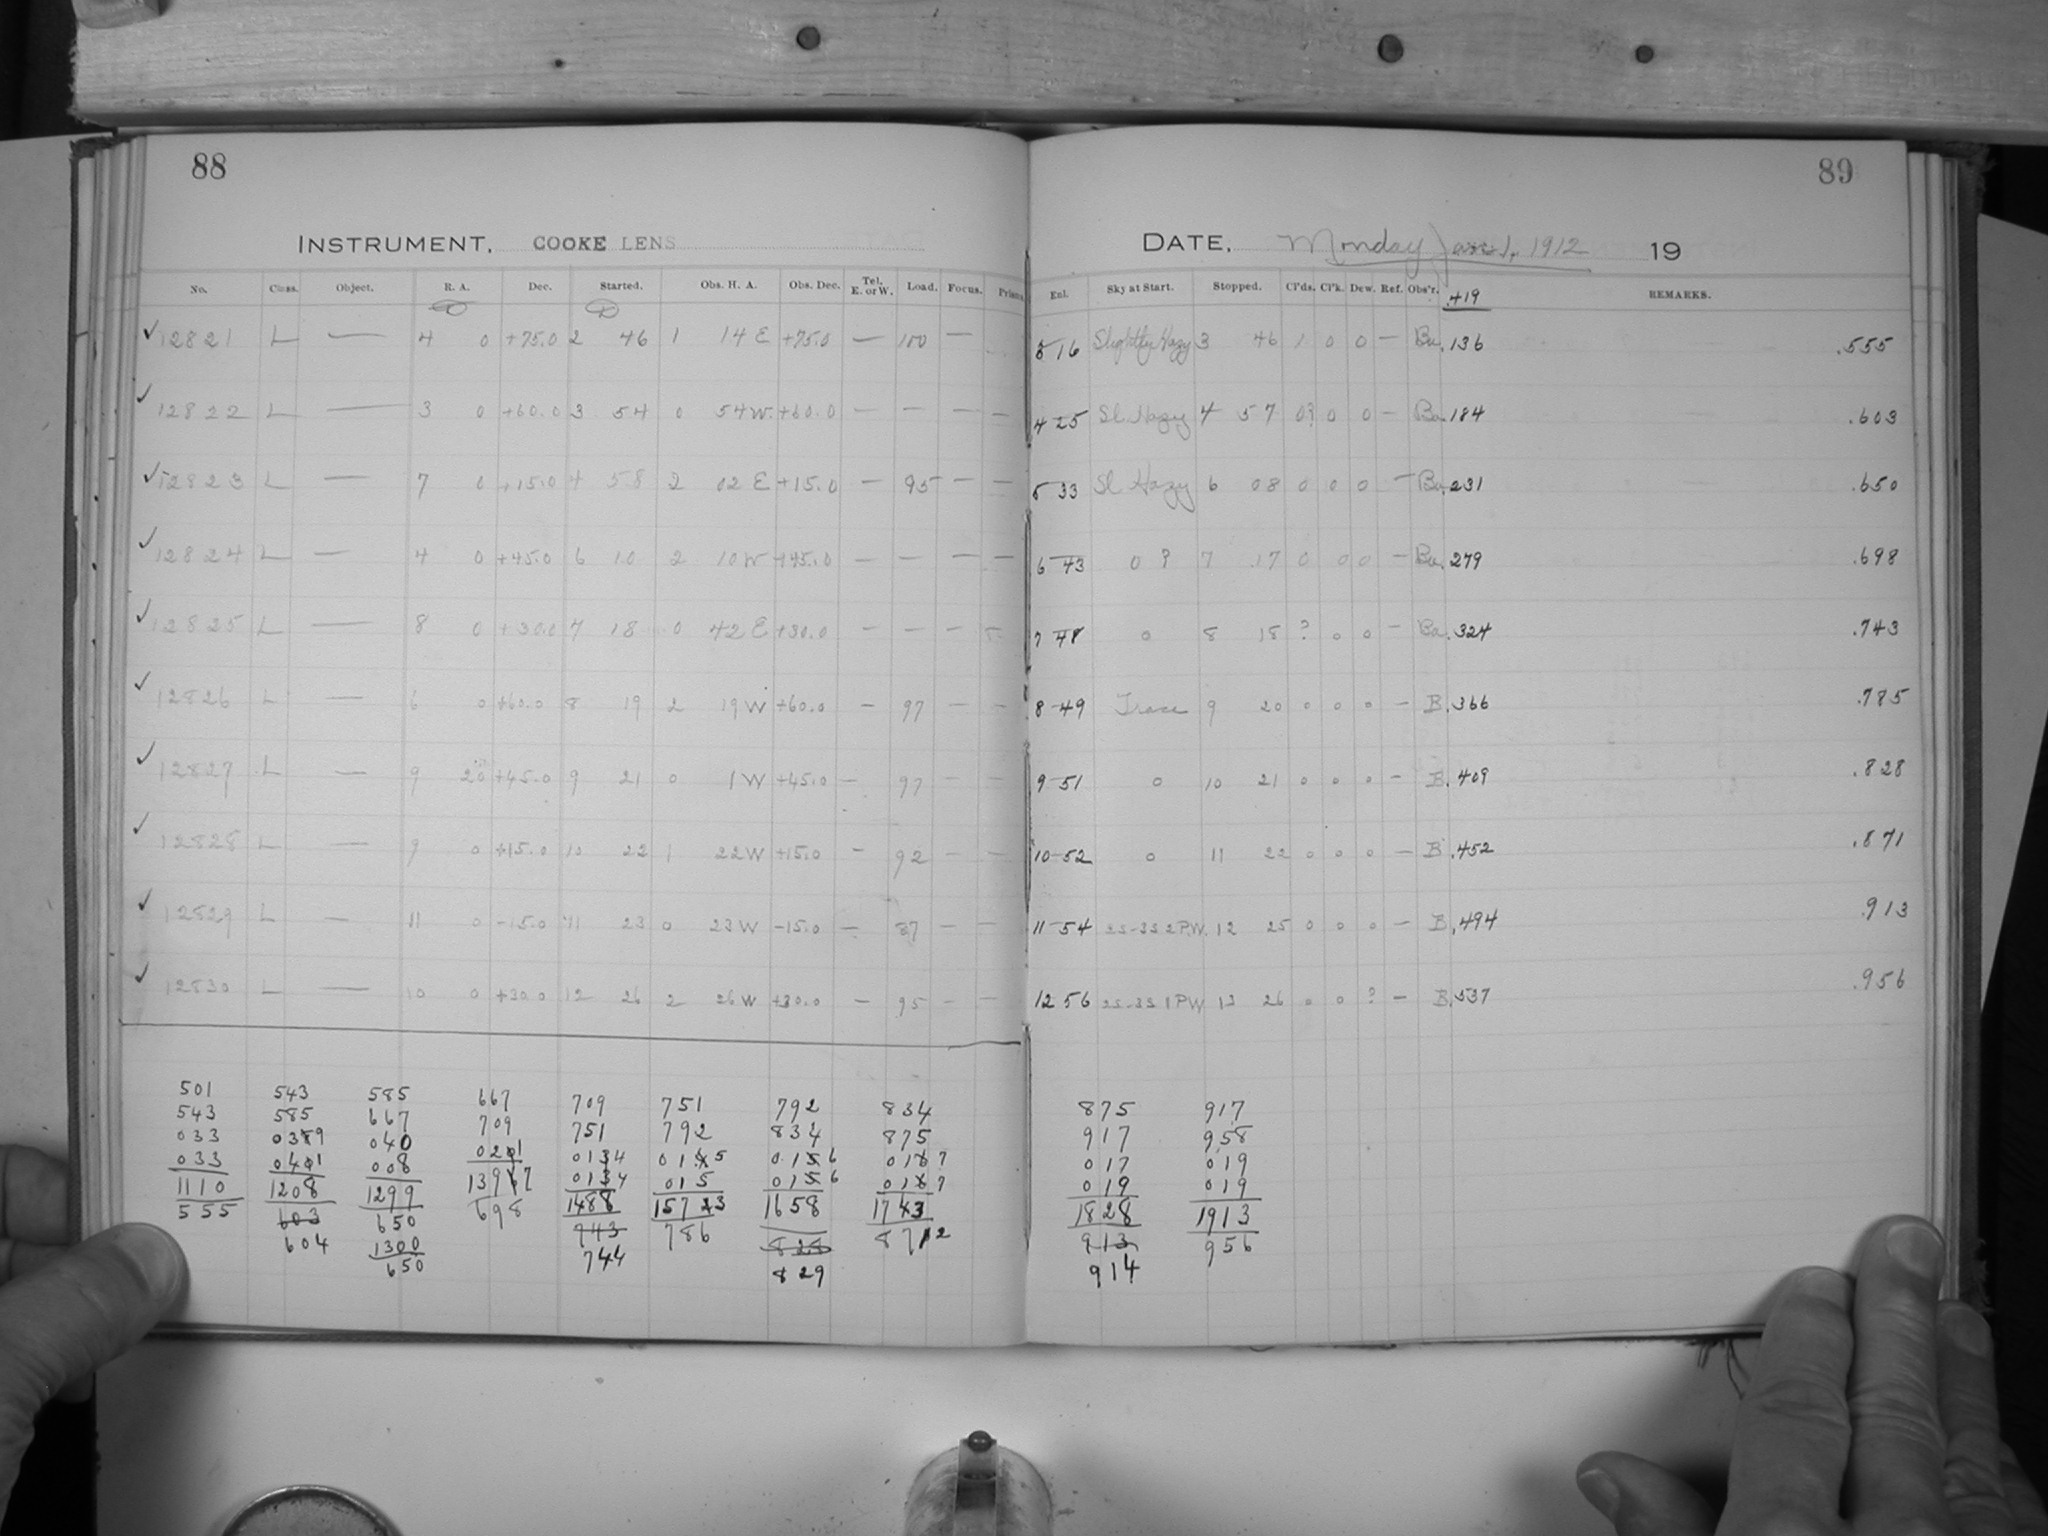 88
89
INSTRUMENT, COOKE LENS
DATE, Monday Jan 1, 1912 19
No. Class. Object. R. A. Dec. Started. Obs. H. A. Obs. Dec. Tel. E. or W. Load. Focus. Prism.
Exl. Sky at Start. Stopped. Cl'ds. Cl'k. Dew. Ref. Obs'r. .419 REMARKS.
✓ 12821 L — 4 0 +75.0 2 46 1 14 E +75.0 — 100 — 16 Slightly Hazy 3 46 1 0 0 — Ba .136 .555
✓ 12822 L — 3 0 +60.0 3 54 0 54 W. +60.0 — — — — 4 25 Sl. Hazy 4 57 0? 0 0 — Ba .184 .603
✓ 12823 L — 7 0 +15.0 4 58 2 02 E +15.0 — 95 — — 5 33 Sl Hazy 6 08 0 0 0 — Ba .231 .650
✓ 12824 L — 4 0 +45.0 6 10 2 10 W +45.0 — — — — 6 43 0 ? 7 17 0 0 0 — Ba .279 .698
✓ 12825 L — 8 0 +30.0 7 18 0 42 E +30.0 — — — — 7 48 0 8 18 ? 0 0 — Ba .324 .743
✓ 12826 L — 6 0 +60.0 8 19 2 19 W +60.0 — 97 — — 8 49 Trace 9 20 0 0 0 — B .366 .785
✓ 12827 L — 9 20 +45.0 9 21 0 1 W +45.0 — 97 — — 9 51 0 10 21 0 0 0 — B .409 .828
✓ 12828 L — 9 0 +15.0 10 22 1 22 W +15.0 — 92 — — 10 52 0 11 22 0 0 0 — B .452 .871
✓ 12829 L — 11 0 -15.0 11 23 0 23 W -15.0 — 87 — — 11 54 22-33 2 P.W. 12 25 0 0 0 — B .494 .913
✓ 12830 L — 10 0 +30.0 12 26 2 26 W +30.0 — 95 — — 12 56 22-33 1 PW 13 26 0 0 ? — B .537 .956
501 543 585 667 709 751 792 834 875 917
543 585 667 709 751 792 834 875 917 958
033 039 040 021 0134 015 016 017 017 019
033 041 008 1397 0134 015 016 017 019 019
1110 1208 1299 698 1488 1573 1658 1743 1828 1913
555 603 650 743 786 828 872 913 956
604 1300 744 829 914
650